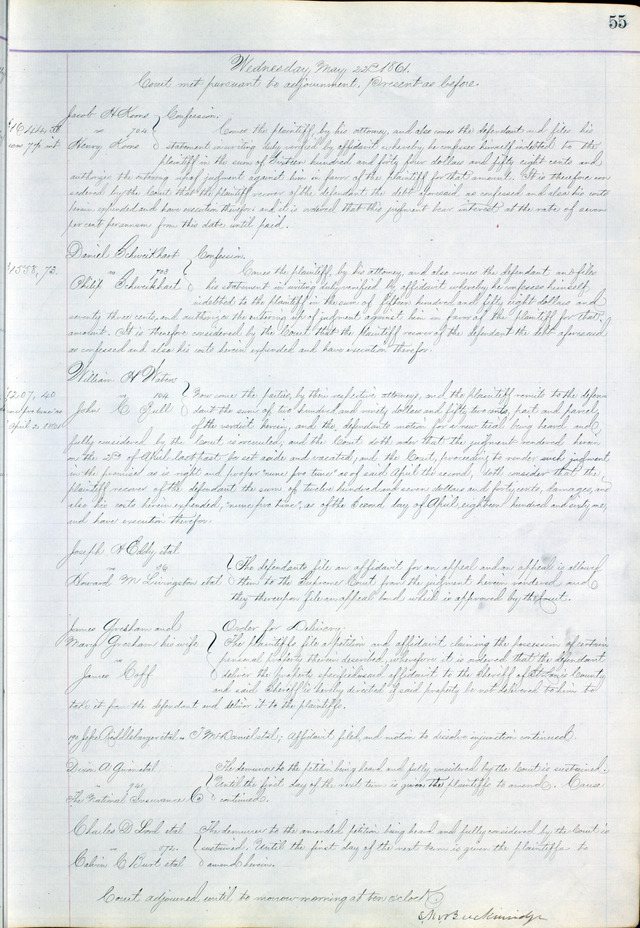 55
Wednesday May 22d 1861.
Court met pursuant to adjournment. Present as before.
Jacob H Koons Confession.
vs 704 Comes the plaintiff, by his attorney, and also comes the defendant and files his
Henry Koons statement in writing duly verified by affidavit whereby he confesses himself indebted to the
plaintiff in the sum of Sixteen hundred and forty four dollars and fifty eight cents and
authorizes the entering up of judgment against him in favor of the plaintiff for that amount. It is therefore con
sidered by the Court that the plaintiff recover of the defendant the debt aforesaid as confessed and also his costs
herein expended and have execution therefor, and it is ordered that this judgment bear interest at the rate of seven
per cent per annum from this date until paid.
Daniel Schweikhart Confession.
$1558,73. vs 703 Comes the plaintiff, by his attorney, and also comes the defendant, and files
Philip Schweikhart. his statement in writing duly verified by affidavit whereby he confesses himself
indebted to the plaintiff in the sum of fifteen hundred and fifty eight dollars and
seventy three cents, and authorizes the entering up of judgment against him in favor of the plaintiff for that
amount. It is therefore considered by the Court that the plaintiff recover of the defendant the debt aforesaid
as confessed and also his costs herein expended and have execution therefor.
William H Waters
$1207,40 vs 104 Now come the parties, by their respective attorneys, and the plaintiff remits to the defen
John C Bull dant the sum of two hundred and ninety dollars and fifty two cents, part and parcel
April 2. 1861 of the verdict herein, and the defendants motion for a new trial being heard and
fully considered by the Court is overruled, and the Court doth order that the judgment rendered herein
on the 2d of April last past be set aside and vacated, and the Court, proceeding to render such judgment
in the premises as is right and proper "nunc pro tunc" as of said April the second, doth consider that the
plaintiff recover of the defendant the sum of twelve hundred and seven dollars and forty cents, damages, and
also his costs herein expended, "nunc pro tunc", as of the Second day of April, eighteen hundred and sixty one,
and have execution therefor.
Joseph H Eddy et al
vs 36 The defendants file an affidavit for an appeal and an appeal is allowed
Howard M Livingston et al them to the Supreme Court from the judgment herein rendered and
they thereupon file an appeal bond which is approved by the Court.
James Gresham and Order for Delivery.
Mary Gresham his wife The plaintiffs file a petition and affidavit claiming the possession of certain
vs personal property therein described, wherefore it is ordered that the defendant
James Goff deliver the property specified in said affidavit to the Sheriff of St Louis County
and said Sheriff is hereby directed if said property be not delivered to him to
take it from the defendant and deliver it to the plaintiffs.
et al vs T McDaniel et al; Affidavit filed and motion to dissolve injunction continued.
et al The demurrer to the petition being heard and fully considered by the Court is sustained.
vs Until the first day of the next term is given the plaintiffs to amend. Cause
The National Insurance Co continued.
Charles D Lord et al The demurrer to the amended petition being heard and fully considered by the Court is
vs sustained. Until the first day of the next term is given the plaintiffs to
Calvin C Burt et al amend herein.
Court adjourned until to morrow morning at ten o'clock